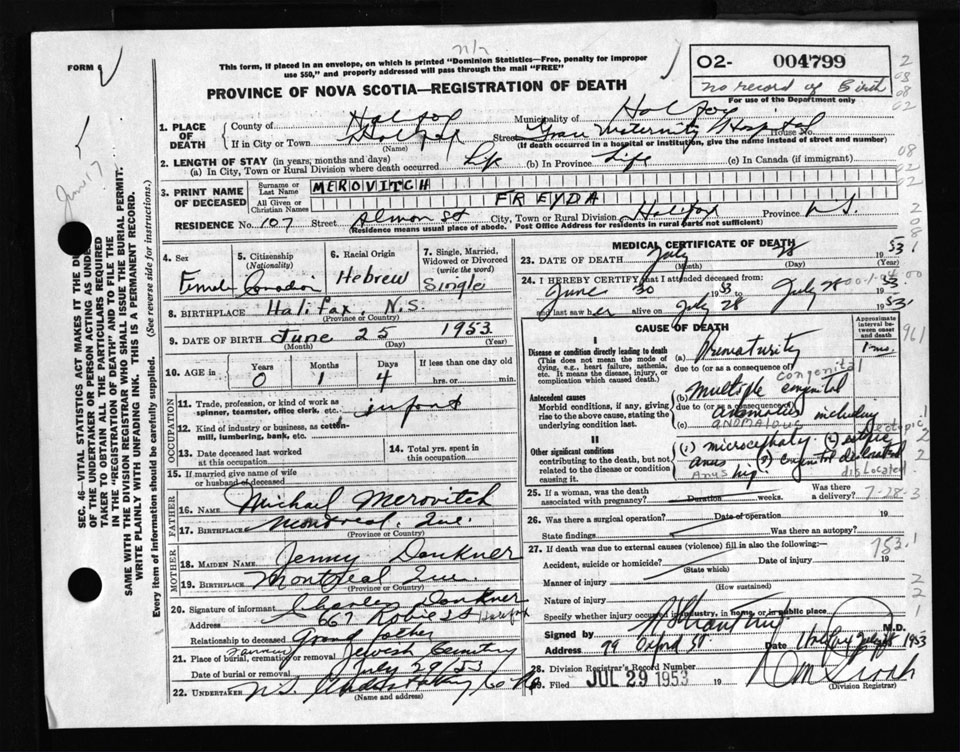 n/r
FORM
This form, if placed in an envelope, on which is printed "Dominion Statistics—Free, penalty for improper
use $50," and properly addressed will pass through the mail "FREE"
PROVINCE OF NOVA SCOTIA—REGISTRATION OF DEATH
O2- 004799
no record of Birth
For use of the Department only
2
03
08
02
1. PLACE OF DEATH
County of Halifax Municipality of Halifax
If in City or Town Halifax (Name) Street Grace Maternity Hospital House No.
(If death occurred in a hospital or institution, give the name instead of street and number)
2. LENGTH OF STAY (in years, months and days)
(a) In City, Town or Rural Division where death occurred Life (b) In Province Life (c) In Canada (if immigrant)
08
02
02
3. PRINT NAME OF DECEASED
Surname or Last Name MEROVITCH
All Given or Christian Names FREYDA
RESIDENCE No. 107 Street Almon St City, Town or Rural Division Halifax Province N.S.
(Residence means usual place of abode. Post Office Address for residents in rural parts not sufficient)
2
0
8
4. Sex Female
5. Citizenship (Nationality) Canadian
6. Racial Origin Hebrew
7. Single, Married, Widowed or Divorced (write the word) Single
8. BIRTHPLACE Halifax N.S.
(Province or Country)
9. DATE OF BIRTH June 25 1953
(Month) (Day) (Year)
10. AGE in Years 0 Months 1 Days 4 If less than one day old
hrs. or min.
OCCUPATION
11. Trade, profession, or kind of work as spinner, teamster, office clerk, etc. infant
12. Kind of industry or business, as cotton-mill, lumbering, bank, etc.
13. Date deceased last worked at this occupation
14. Total yrs. spent in this occupation
15. If married give name of wife or husband of deceased
FATHER
16. NAME Michael Merovitch
17. BIRTHPLACE Montreal, Que.
(Province or Country)
MOTHER
18. MAIDEN NAME Jenny Dankner
19. BIRTHPLACE Montreal Que.
(Province or Country)
20. Signature of informant Charles Dankner
Address 667 Robie St Halifax
Relationship to deceased Grand father
21. Place of burial, cremation or removal Jewish Cemetery
Date of burial or removal July 29/53
22. UNDERTAKER N.S. Undertaking Co
(Name and address)
MEDICAL CERTIFICATE OF DEATH
23. DATE OF DEATH July 28 1953
(Month) (Day) (Year)
24. I HEREBY CERTIFY that I attended deceased from
June 30 1953 to July 28 1953
I last saw her alive on July 28 1953
CAUSE OF DEATH
Approximate interval between onset and death
I
Disease or condition directly leading to death
(This does not mean the mode of dying, e.g., heart failure, asthenia, etc. It means the disease, injury, or complication which caused death.)
(a) Prematurity 1 mo.
due to (or as a consequence of)
Antecedent causes
Morbid conditions, if any, giving rise to the above cause, stating the underlying condition last.
congenital
(b) Multiple congenital
due to (or as a consequence of)
anomalies including
(c) ANOMALOUS
II
Other significant conditions
contributing to the death, but not related to the disease or condition causing it.
(1) microcephaly (2) ectopic
Ectopic
anus (3) congenital dislocated
Anus hip dislocated
25. If a woman, was the death associated with pregnancy? Duration weeks. Was there a delivery?
7-28-3
26. Was there a surgical operation? Date of operation 19
State findings Was there an autopsy?
27. If death was due to external causes (violence) fill in also the following:—
Accident, suicide or homicide? Date of injury 19
(State which)
Manner of injury
(How sustained)
Nature of injury
Specify whether injury occurred in industry, in home, or in public place
Signed by M.D.
Address 99 Oxford St. Date Halifax July 28 1953
28. Division Registrar's Record Number
29. Filed JUL 29 1953 19
(Division Registrar)
961
753.1
June 17
SEC. 46—VITAL STATISTICS ACT MAKES IT THE DU
OF THE UNDERTAKER OR PERSON ACTING AS UNDE
TAKER TO OBTAIN ALL THE PARTICULARS REQUIRED
IN THE "REGISTRATION OF DEATH" AND TO FILE THE
SAME WITH THE DIVISION REGISTRAR WHO SHALL ISSUE THE BURIAL PERMIT.
WRITE PLAINLY WITH UNFADING INK. THIS IS A PERMANENT RECORD.
Every item of information should be carefully supplied. (See reverse side for instructions.)